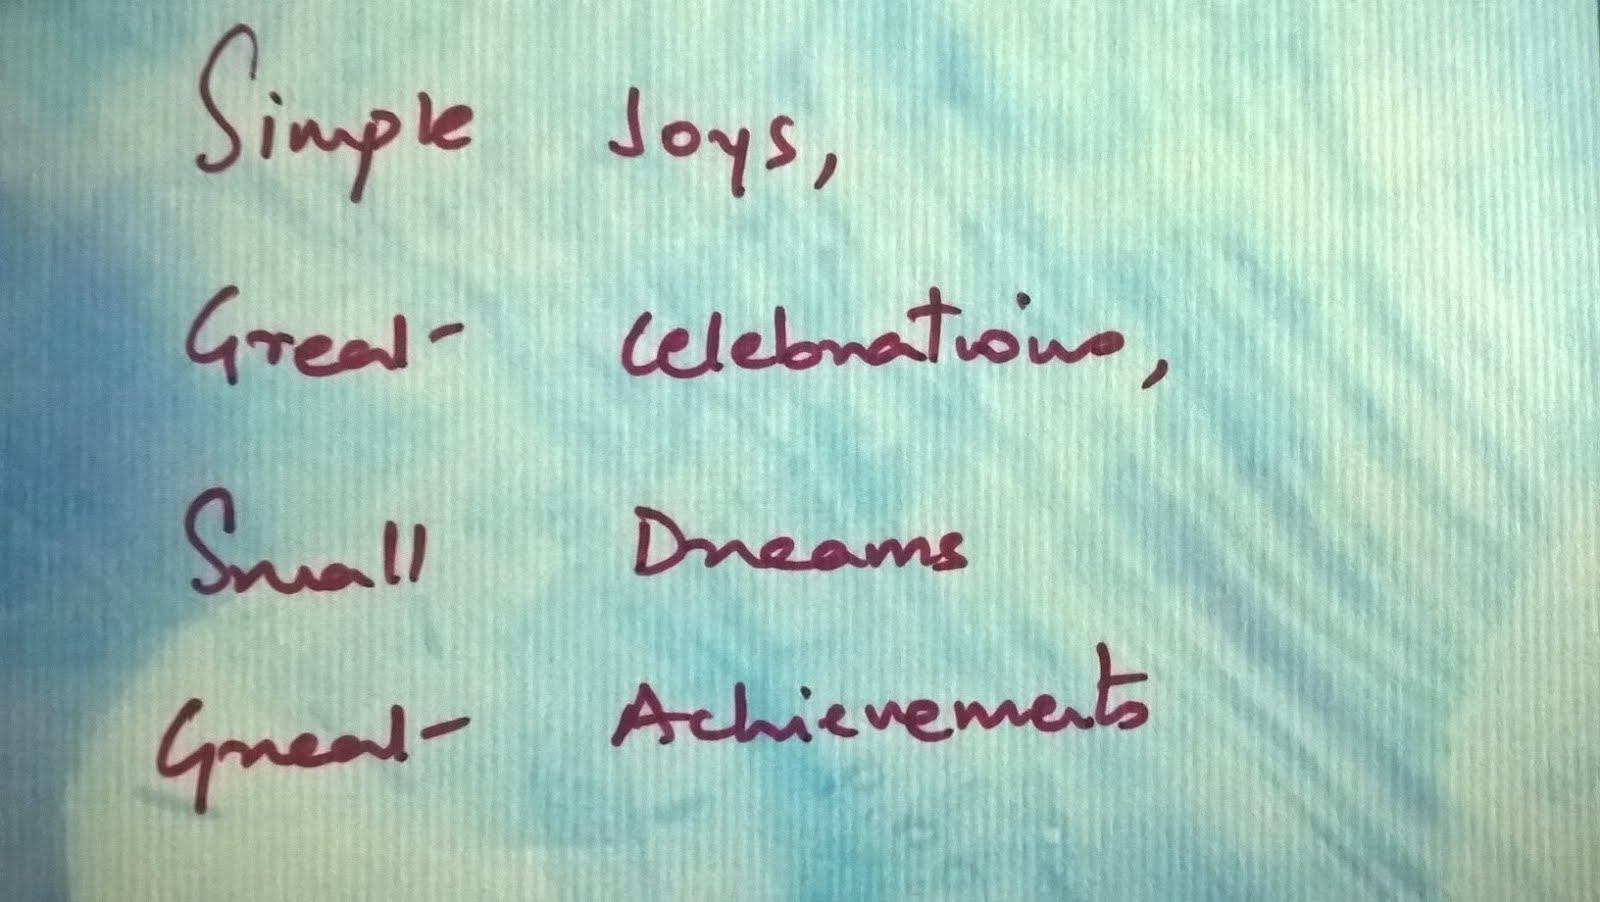 Simple Joys,
Great Celebrations,
Small Dreams
Great Achievements